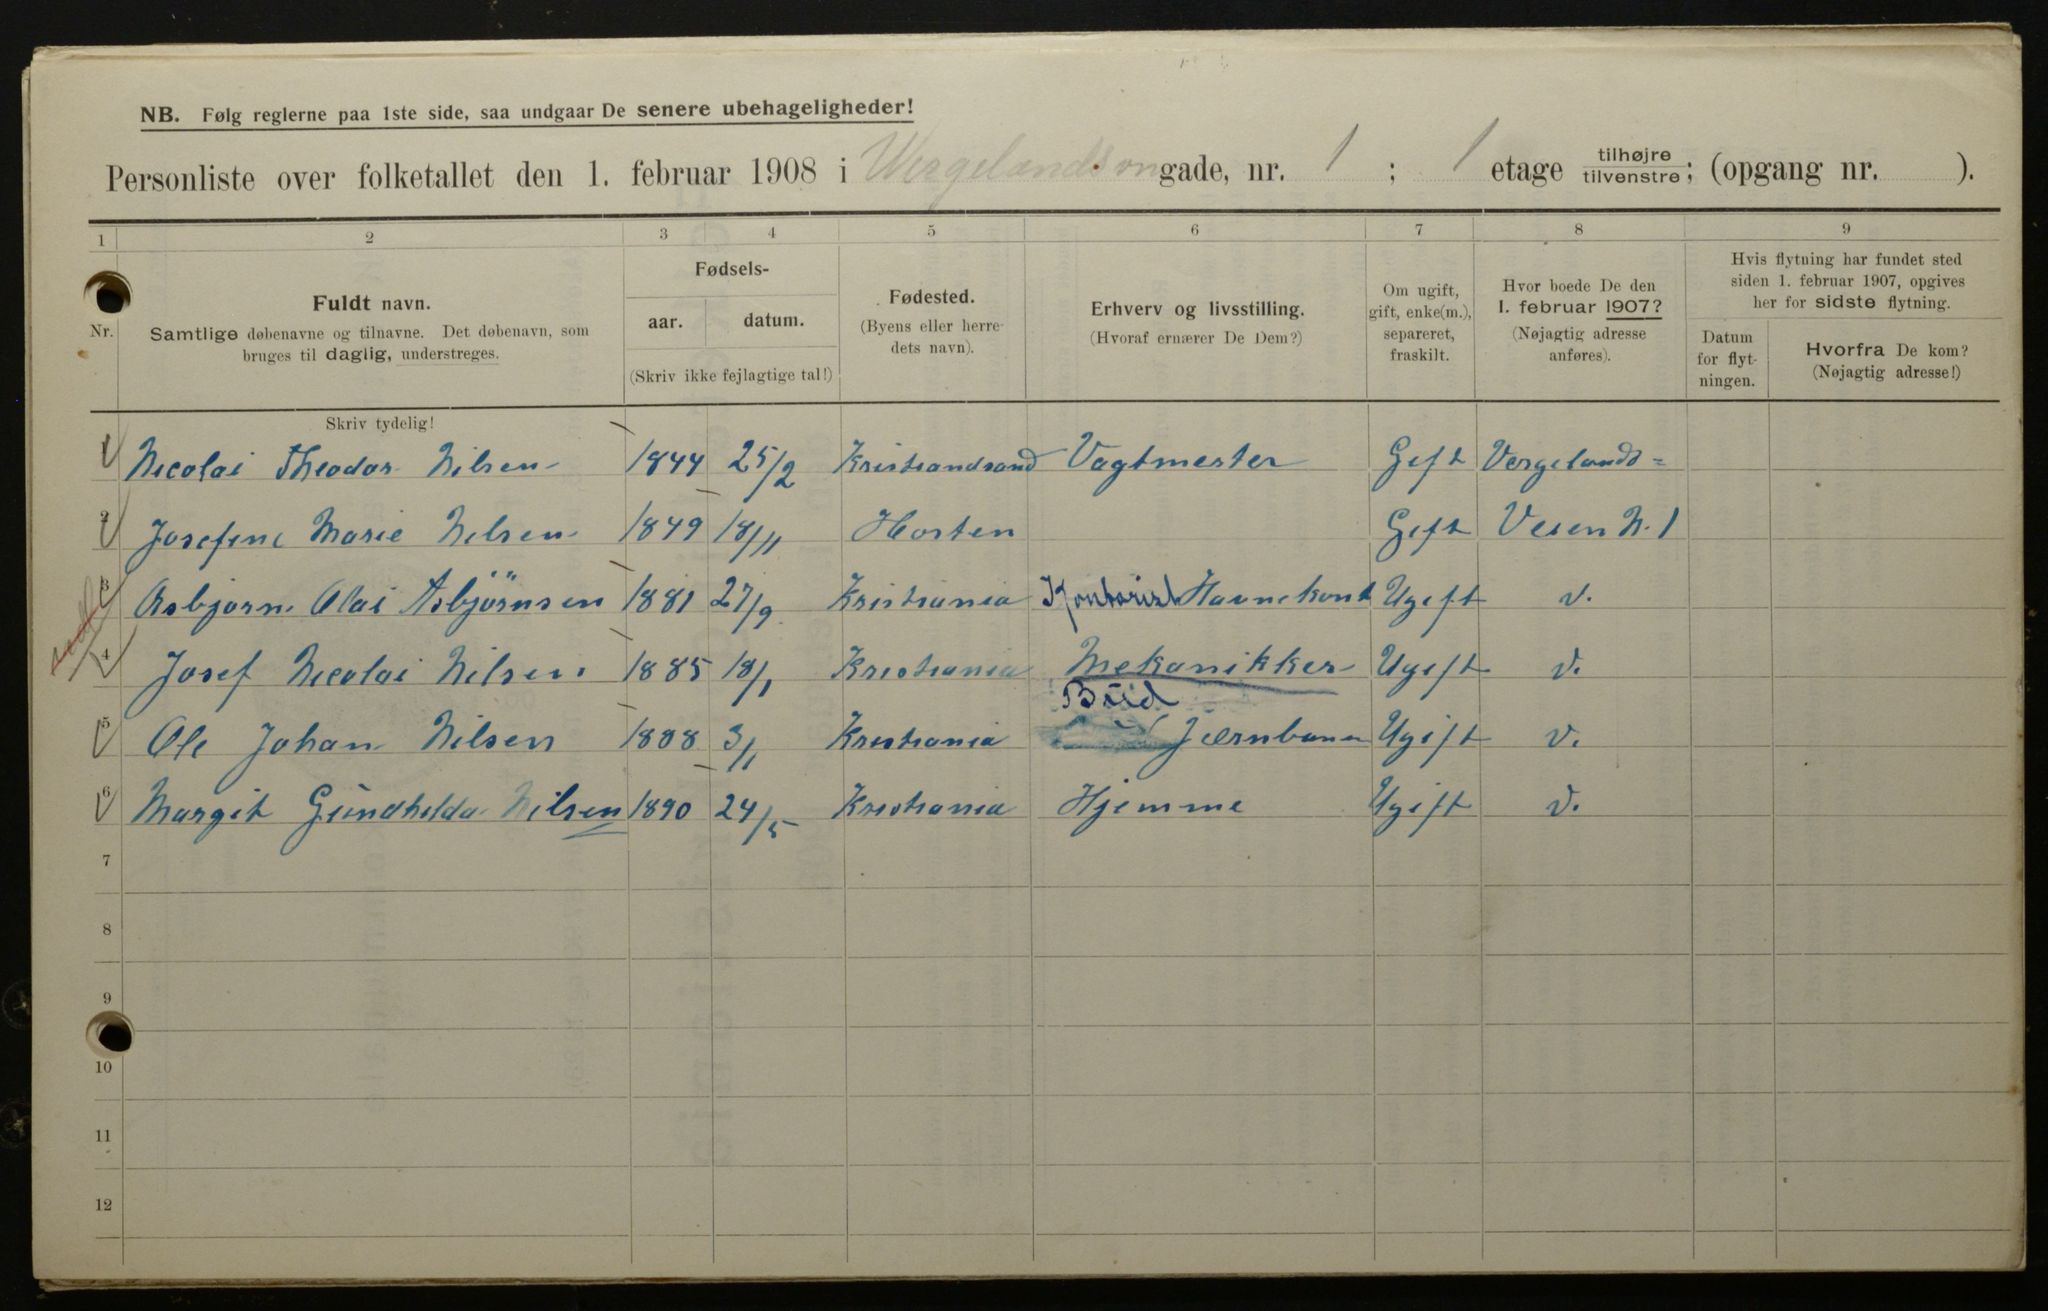 NB. Følg reglerne paa 1ste side, saa undgaar De senere ubehageligheder!
Personliste over folketallet den 1. februar 1908 i Wergelandsvn gade, nr. 1 ; 1 etage tilhøjre tilvenstre; (opgang nr. ).
1 2 3 4 5 6 7 8 9
Nr.
Fuldt navn.
Samtlige døbenavne og tilnavne. Det døbenavn, som
bruges til daglig, understreges.
Fødsels-
aar. datum.
(Skriv ikke fejlagtige tal!)
Fødested.
(Byens eller herre-
dets navn).
Erhverv og livsstilling.
(Hvoraf ernærer De Dem?)
Om ugift,
gift, enke(m.),
separeret,
fraskilt.
Hvor boede De den
1. februar 1907?
(Nøjagtig adresse
anføres).
Hvis flytning har fundet sted
siden 1. februar 1907, opgives
her for sidste flytning.
Datum
for flyt-
ningen.
Hvorfra De kom?
(Nøjagtig adresse!)
Skriv tydelig!
1 Nicolai Theodor Nilsen 1844 25/2 Kristiandsand Vagtmester Gift Vergelands=
2 Josefine Marie Nilsen 1849 18/11 Horten Gift Veien N. 1
3 Asbjørn Olai Asbjörnsen 1881 27/9 Kristiania Kontorist Havnekont Ugift v.
4 Josef Nicolai Nilsen 1885 18/1 Kristiania Mekanikker Ugift v.
5 Ole Johan Nilsen 1888 3/1 Kristiania Bud Jærnbanen Ugift v.
6 Margit Gundhilda Nilsen 1890 24/5 Kristiania Hjemme Ugift v.
7
8
9
10
11
12